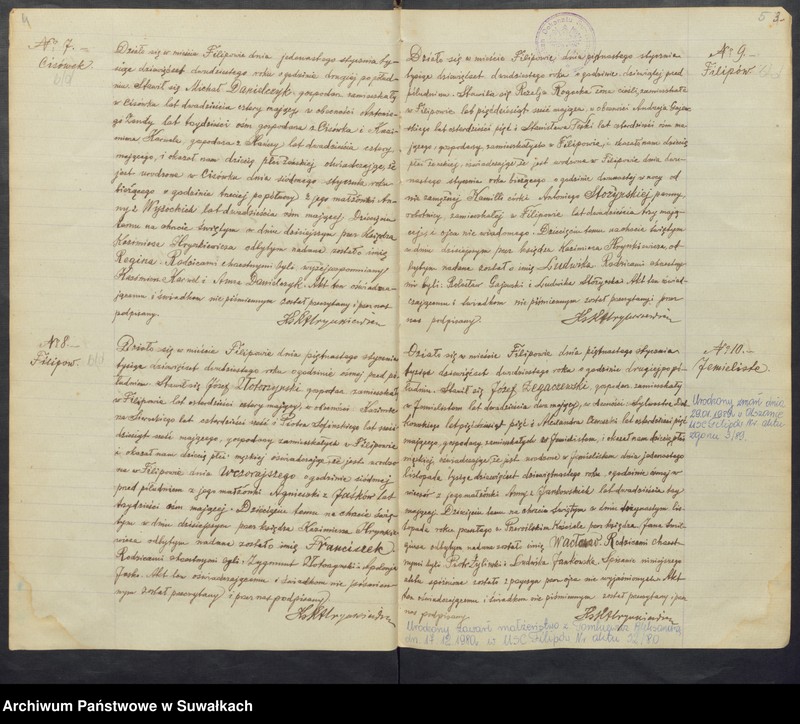 4
No 7.
Cisówek
Działo się w mieście Filipowie dnia jedenastego stycznia ty-
siąc dziewięćset dwudziestego roku o godzinie drugiej po połud-
niu. Stawił się Michał Danielczyk, gospodarz zamieszkały
w Cisówku lat dwadzieścia cztery mający, w obecności
lat trzydzieści ośm gospodarza z Cisówka i Kazi-
mierza Karwela, gospodarza z lat dwadzieścia cztery
mającego, i okazał nam dziecię płci żeńskiej oświadczając, że
jest urodzone w Cisówku dnia siódmego stycznia roku
bieżącego o godzinie trzeciej po północy z jego małżonki An-
ny z Wysockich lat dwadzieścia ośm mającej. Dziecięciu
temu na chrzcie świętym w dniu dzisiejszym przez księdza
Kazimierza Hryniewicza odbytym nadane zostało imię
Regina. Rodzicami chrzestnymi byli wyżej wspomniany
Kazimierz Karwel i Anna Danielczyk. Akt ten oświadcza-
jącemu i świadkom niepiśmiennym został przeczytany i przez nas
podpisany.
No 8.
Filipów.
Działo się w mieście Filipowie dnia piętnastego stycznia
tysiąc dziewięćset dwudziestego roku o godzinie ósmej przed po-
łudniem. Stawił się Józef gospodarz zamieszkały
w Filipowie lat czterdzieści cztery mający, w obecności Kazimie-
rza lat czterdzieści sześć i Piotra lat trzy-
dzieści sześć mającego, gospodarzy zamieszkałych w Filipowie
i okazał nam dziecię płci męskiej oświadczając, że jest urodzo-
ne w Filipowie dnia wczorajszego o godzinie siódmej
przed południem z jego małżonki Agnieszki z Jasków lat
trzydzieści ośm mającej. Dziecięciu temu na chrzcie świę-
tym w dniu dzisiejszym przez księdza Kazimierza Hrynie-
wicza odbytym nadane zostało imię Franciszek.
Rodzicami chrzestnymi byli: Zygmunt i Apolonja
Jaśko. Akt ten oświadczającemu i świadkom nie piśmien-
nym został przeczytany i przez nas podpisany
5
3.
No 9.
Filipów.
Działo się w mieście Filipowie dnia piętnastego stycznia
tysiąc dziewięćset dwudziestego roku o godzinie dziewiątej przed
południem. Stawiła się Rozalja Rogacka żona cieśli, zamieszkała
w Filipowie lat pięćdziesiąt sześć mająca, w obecności Andrzeja
lat czterdzieści pięć i Stanisława lat czterdzieści ośm ma-
jącego, gospodarzy zamieszkałych w Filipowie, i okazała nam dziecię
płci żeńskiej oświadczając, że jest urodzone w Filipowie dnia dwu-
nastego stycznia roku bieżącego o godzinie dwunastej w nocy od
nie zamężnej Kamilli córki Antoniego Stożyńskiej panny,
robotnicy zamieszkałej w Filipowie lat dwadzieścia trzy mają-
cej, z ojca nie wiadomego. Dziecięciu temu na chrzcie świętym
w dniu dzisiejszym przez księdza Kazimierza Hryniewicza od-
bytym nadane zostało imię Ludwika. Rodzicami chrzestny-
mi byli: Bolesław Gajewski i Ludwika Stożyńska. Akt ten oświad-
czającemu i świadkom nie piśmiennym został przeczytany i przez
nas podpisany
No 10.
Jemieliste
Działo się w mieście Filipowie dnia piętnastego stycznia
tysiąc dziewięćset dwudziestego roku o godzinie drugiej po po-
łudniu. Stawił się Józef Zegaczewski, gospodarz zamieszkały
w Jemielistem lat dwadzieścia dwa mający, w obecności Sylwestra
lat pięćdziesiąt pięć i Aleksandra lat czterdzieści pięć
mającego, gospodarzy zamieszkałych w Jemielistem, i okazał nam dziecię płci
męskiej, oświadczając, że jest urodzone w Jemielistem dnia jedenastego
listopada tysiąc dziewięćset dziewiętnastego roku, o godzinie ósmej w
wieczór z jego małżonki Anny z Jankowskich lat dwadzieścia trzy
mającej. Dziecięciu temu na chrzcie świętym w dniu
listopada roku przeszłego w Kościele przez księdza Jana
odbytym nadane zostało imię Wacław. Rodzicami chrzest-
nymi byli Piotr Żyliński i Ludwika Jankowska. Spisanie niniejszego
aktu spóźnione zostało z przyczyn przez ojca nie wyjaśnionych. Akt
ten oświadczającemu i świadkom nie piśmiennym został przeczytany i przez
nas podpisany
Urodzony zawarł małżeństwo z Aleksandrą
dn. 17.12.1980r w USC Filipów Nr aktu 32/80
Urodzony zmarł dnia
USC Filipów Nr aktu
zgonu 3/89.
Archiwum Państwowe w Suwałkach